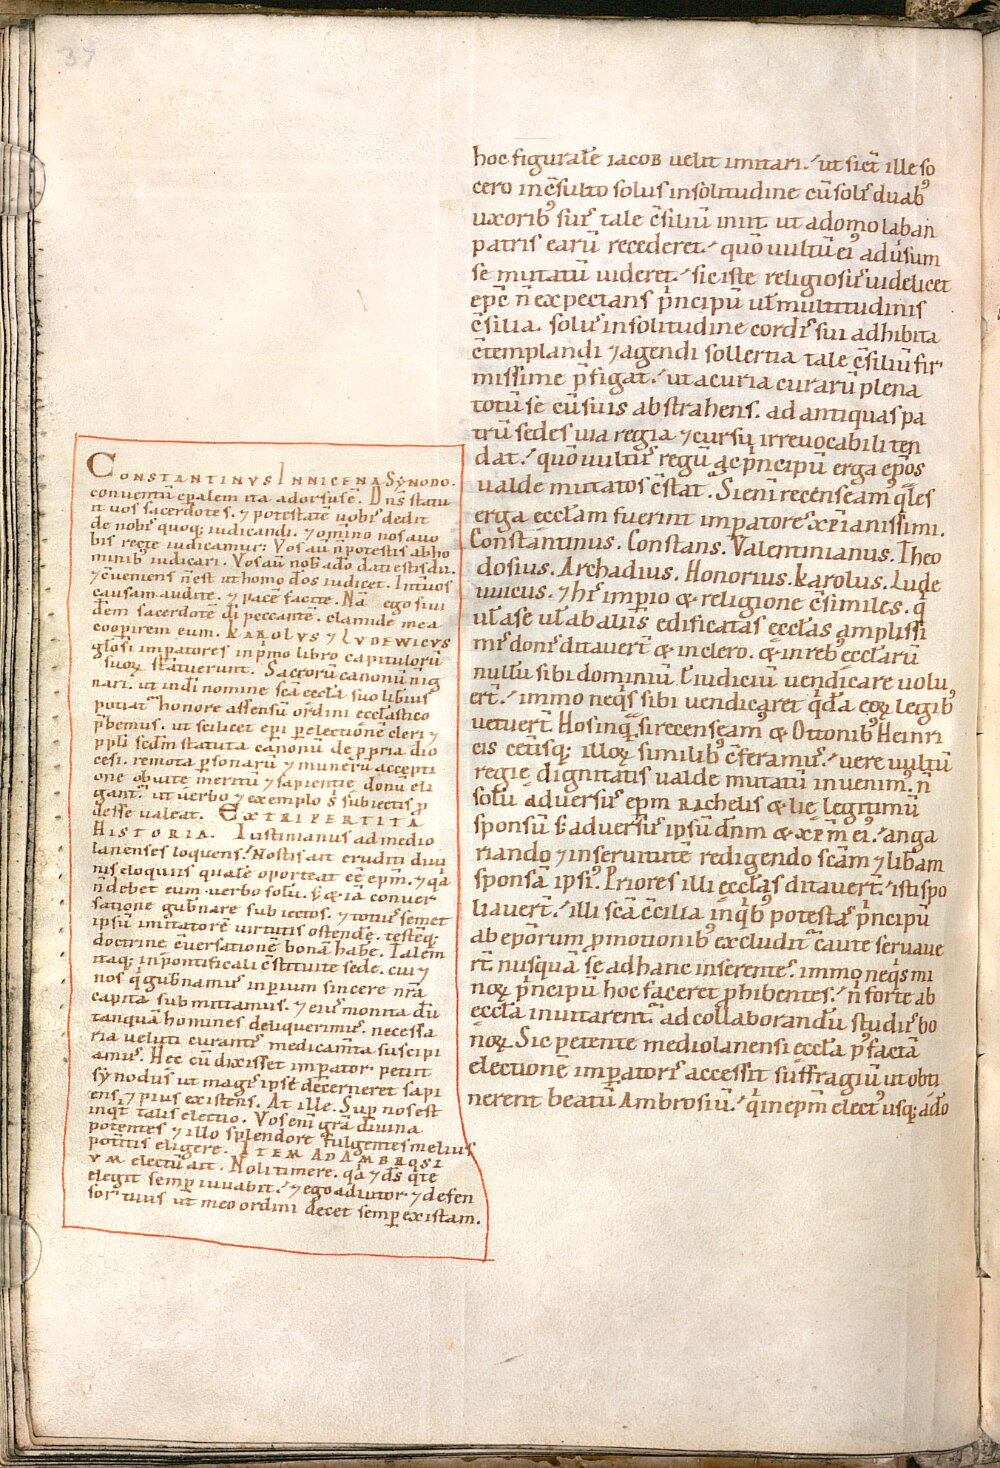 37
hoc figurale iacob uelit imitari. ut sic̄ ille so
cero incs̄ulto solus insolitudine cū sol᷒ duab᷒
uxorib᷒ suis tale c̄siliū iniit. ut adomo laban
patris earū recederet. quō uultū ei᷒ aduſum
se mutatū uideret. sic iste religiosus uidelicet
ep̄c n̄ expectans p̄ncipū ul̄ multitudinis
c̄silia. solus insolitudine cordis sui adhibita
c̄templandi ⁊ agendi sollertia tale c̄siliū fir
missime p̄figat. ut acuria curarū plena
totū se cū suis abstrahens. ad antiquas pa
trū sedes uia regia ⁊ cursu irreuocabili ten
dat. quō uultus regū ac p̄ncipū erga ep̄os
ualde mutatos c̄stat. Si eni recenseam᷒ q̄les
erga eccl̄am fuerint imp̄atores xp̄ianissimi.
Constantinus. Constans. Valentinianus. Theo
dosius. Archadius. Honorius. karolus. Lude
uuicus. ⁊ hi᷒ imp̄io & religione c̄similes. q̄
ul̄ a se ul̄ ab aliis edificatas eccl̄as amplissi
mis donis ditauer̄t & in clero. & in reb᷒ eccl̄arū
nullū sibi dominiū l̄ iudiciū uendicare uolu
er̄t. immo neq̄s sibi uendicaret q̄dā eoꝝ legib᷒
uetuer̄t. Hos inquā si recenseam᷒ & Ottonib᷒ Heinri
cis cetisq; illoꝝ similib᷒ c̄feram᷒. uere uultū
regię dignitatis ualde mutatū inuenim᷒. n̄
solū aduersus ep̄m rachelis & lię legitimū
sponsū s̄ & aduersus ipsū dn̄m & xp̄m ei᷒. anga
riando ⁊ in seruitutē redigendo sc̄am ⁊ lib̄am
sponsā ipsi᷒. Priores illi eccl̄as ditauer̄t. isti spo
liauer̄t. illi sc̄a c̄cilia in q̄b᷒ potestas p̄ncipū
ab ep̄orum p̄motionib᷒ excludit᷒ caute seruaue
rt̄. nusquā se ad hanc inserentes. immo neq̄s mi
noꝝ p̄ncipū hoc faceret p̄hibentes. n̄ forte ab
eccl̄a inuitarent᷒ ad collaborandū studiis bo
noꝝ. Sic petente mediolanensi eccl̄a p᷒ factā
electionē imp̄atoris accessit suffragiū ut obti
nerent beatū Ambrosiū. q̄ in ep̄m elect᷒ usq; adeo
CONSTANTINVS IN NICENA SYNODO.
conuentū ep̄alem ita adorsus ē. Dn̄s statu
it uos sacerdotes. ⁊ potestatē uobis dedit
de nobis quoq; iudicandi. ⁊ om̄ino nos a uo
bis recte iudicamur: Vos aū n̄ potestis ab ho
minib᷒ iudicari. Vos aū nob᷒ a dō dati estis dii.
⁊ c̄ueniens n̄ est ut homo deos iudicet. Int̄ uos
causam audite. ⁊ pacē facite. Nā ego si ui
dērem sacerdotē dī peccante. clamide mea
coop̄irem eum. KAROLVS ⁊ LVDEWICVS
gl̄osi imp̄atores in p̄mo libro capitulorū
suoꝝ statuerunt. Sacrorū canonū n̄ ig
nari. ut in dī nomine sc̄a eccl̄a suo liberius
potiat᷒ honore assensū ordini eccl̄astico
p̄bemus. ut scilicet ep̄i p̄ electionē cleri ⁊
pp̄li sc̄dm statuta canonū de p̄pria dio
cesi. remota p̄sonarū ⁊ munerū accepti
one ob uite meritū ⁊ sapientie donū eli
gant᷒. ut uerbo ⁊ exemplo s̄ subiectis p̄
desse ualeat. EX TRIPERTITA
HISTORIA. Iustinianus ad medio
lanenses loquens. Nostis ait eruditi diui
nis eloquiis qualē oporteat eē ep̄m. ⁊ q̄a
n̄ debet eum uerbo solū. s̄ & iā conuer
satione gub̄nare subiectos. ⁊ totius semet
ipsū imitatorē uirtutis ostende. testēq;
doctrine c̄uersationē bonā habe. Talem
itaq; in pontificali c̄stituite sede. cui ⁊
nos q̄ gub̄namus inperium sincere nr̄a
capita submittamus. ⁊ eius monita dū
tanquā homines deliquerimus. necessa
ria ueluti curantis medicam̄ta suscipi
amus. Hec cū dixisset imp̄ator. petiit
synodus ut magis ipse dec̄erneret sapi
ens ⁊ pius existens. At ille. Sup̄ nos est
inq̄t talis electio. Vos eni gr̄a diuina
potentes ⁊ illo splendore fulgentes melius
pot̄itis eligere. ITEM AD AMBROSI
VM electū ait. Noli timere. q̄a ⁊ ds̄ q̄ te
elegit semp̄ iuuabit. ⁊ ego adiutor ⁊ defen
sor tuus ut meo ordini decet semper existam.